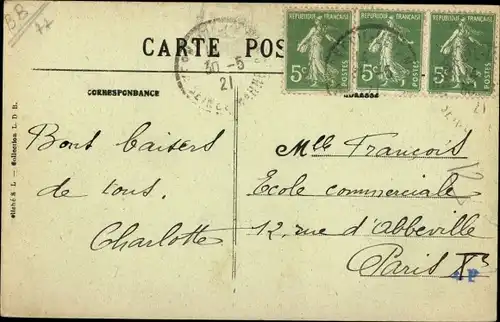 BB
77
CARTE POS
30-5
21
REPUBLIQUE FRANÇAISE
5c
POSTES
REPUBLIQUE FRANÇAISE
5c
POSTES
REPUBLIQUE FRANÇAISE
5c
POSTES
CORRESPONDANCE
Cliché & L – Collection L. D. B.
Bons baisers
de tous.
Charlotte
Mlle François
Ecole commerciale
12, rue d'Abbeville
Paris Xe